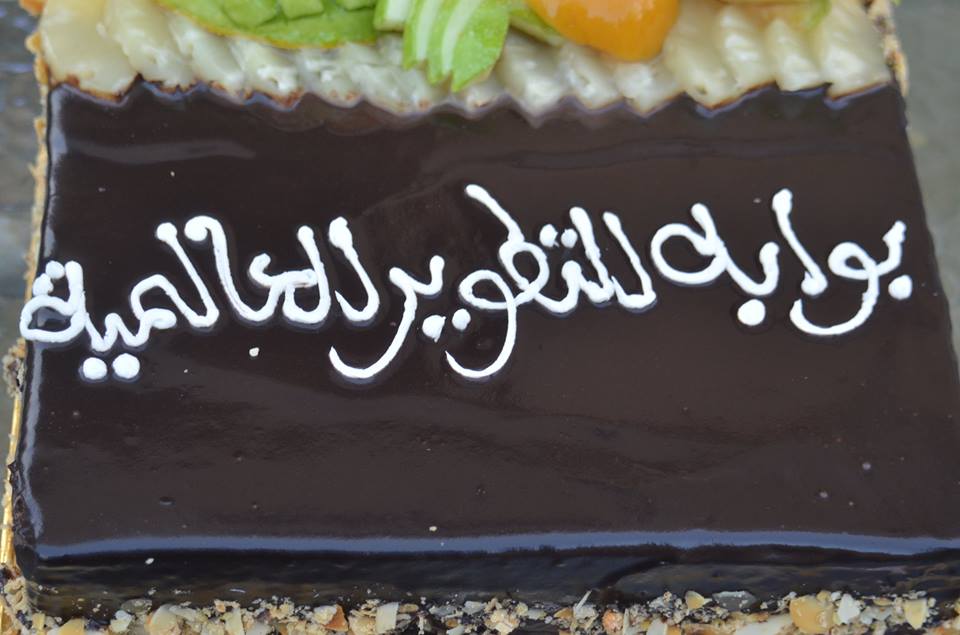 بوابه للتطوير العالمية